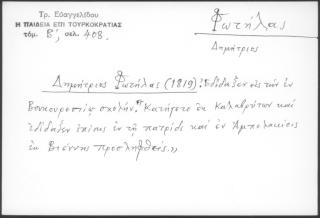 Τρ. Ευαγγελίδου
Η ΠΑΙΔΕΙΑ ΕΠΙ ΤΟΥΡΚΟΚΡΑΤΙΑΣ
τόμ. Β΄, σελ. 408.
Φωτήλας
Δημήτριος
Δημήτριος Φωτήλας (1819): Εδίδαξεν εις την εν
Βουκουρεστίῳ σχολήν. Κατήγετο εκ Καλαβρύτων και
εδίδαξεν επίσης εν τῃ πατρίδι και εν Αμπελακίοις
εκ Βιέννης προσληφθείς.»